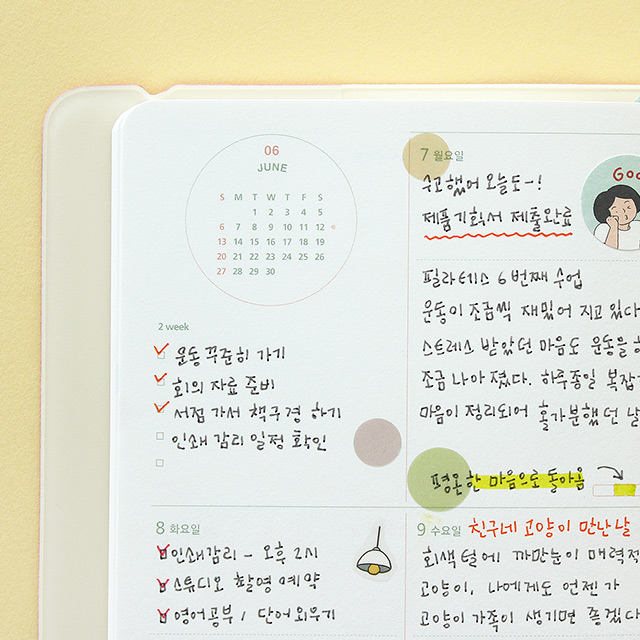 06
JUNE
S M T W T F S
1 2 3 4 5
6 7 8 9 10 11 12
13 14 15 16 17 18 19
20 21 22 23 24 25 26
27 28 29 30
2 week
운동 꾸준히 가기
회의 자료 준비
서점 가서 책구경 하기
인쇄 감리 일정 확인
7 월요일
수고했어 오늘도~!
제품기획서 제출완료
필라테스 6번째 수업
운동이 조금씩 재밌어 지고 있다
스트레스 받았던 마음도 운동을
조금 나아졌다. 하루종일 복잡
마음이 정리되어 홀가분했던 날
평온한 마음으로 돌아옴
8 화요일
인쇄감리 - 오후 2시
스튜디오 촬영 예약
영어공부 / 단어 외우기
9 수요일 친구네 고양이 만난 날
회색 털에 까만눈이 매력적
고양이. 나에게도 언젠가
고양이 가족이 생기면 좋겠다